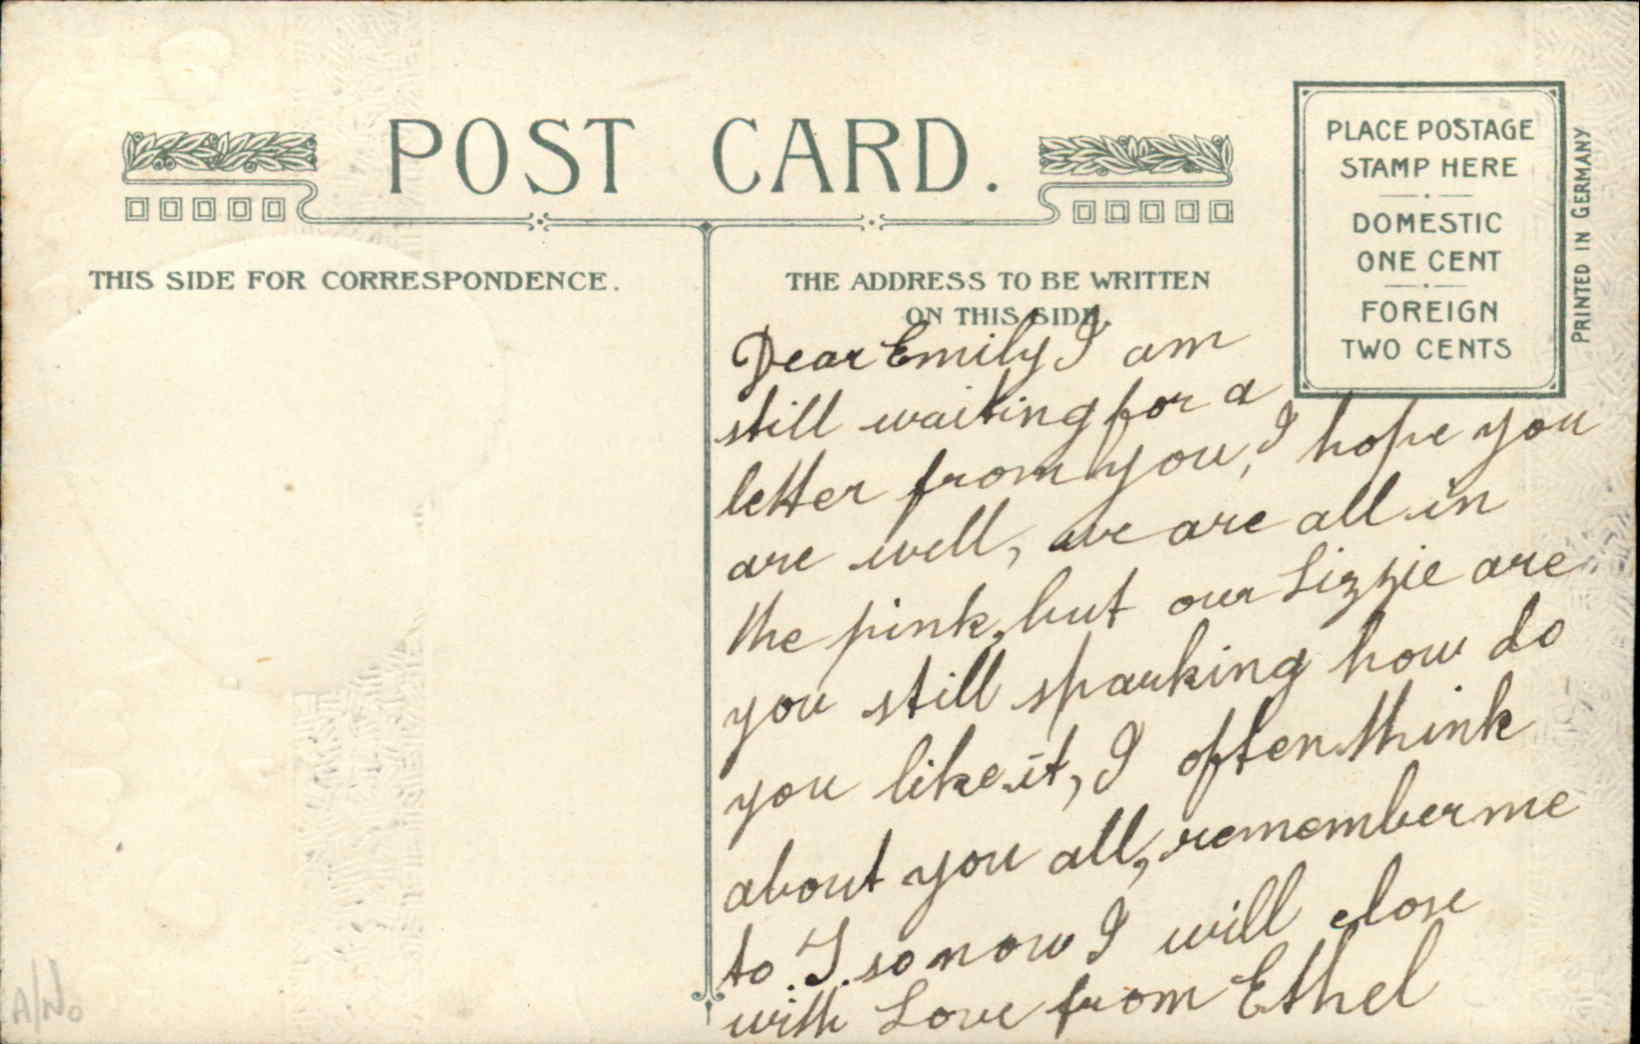 POST CARD.
THIS SIDE FOR CORRESPONDENCE.
THE ADDRESS TO BE WRITTEN
ON THIS SIDE.
PLACE POSTAGE
STAMP HERE
DOMESTIC
ONE CENT
FOREIGN
TWO CENTS
PRINTED IN GERMANY
Dear Emily I am
still waiting for a
letter from you, I hope you
are well, we are all in
the pink, but our Lizzie are
you still sparking how do
you like it, I often think
about you all, remember me
to J. so now I will close
with Love from Ethel
A/No